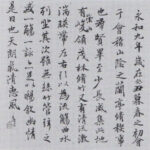 永和九年歲在癸丑暮春之初會
于會稽山陰之蘭亭脩禊事
也群賢畢至少長咸集此地
有崇山峻領茂林脩竹又有清流激
湍暎帶左右引以為流觴曲水
列坐其次雖無絲竹管弦之
盛一觴一詠亦足以暢敘幽情
是日也天朗氣清惠風和